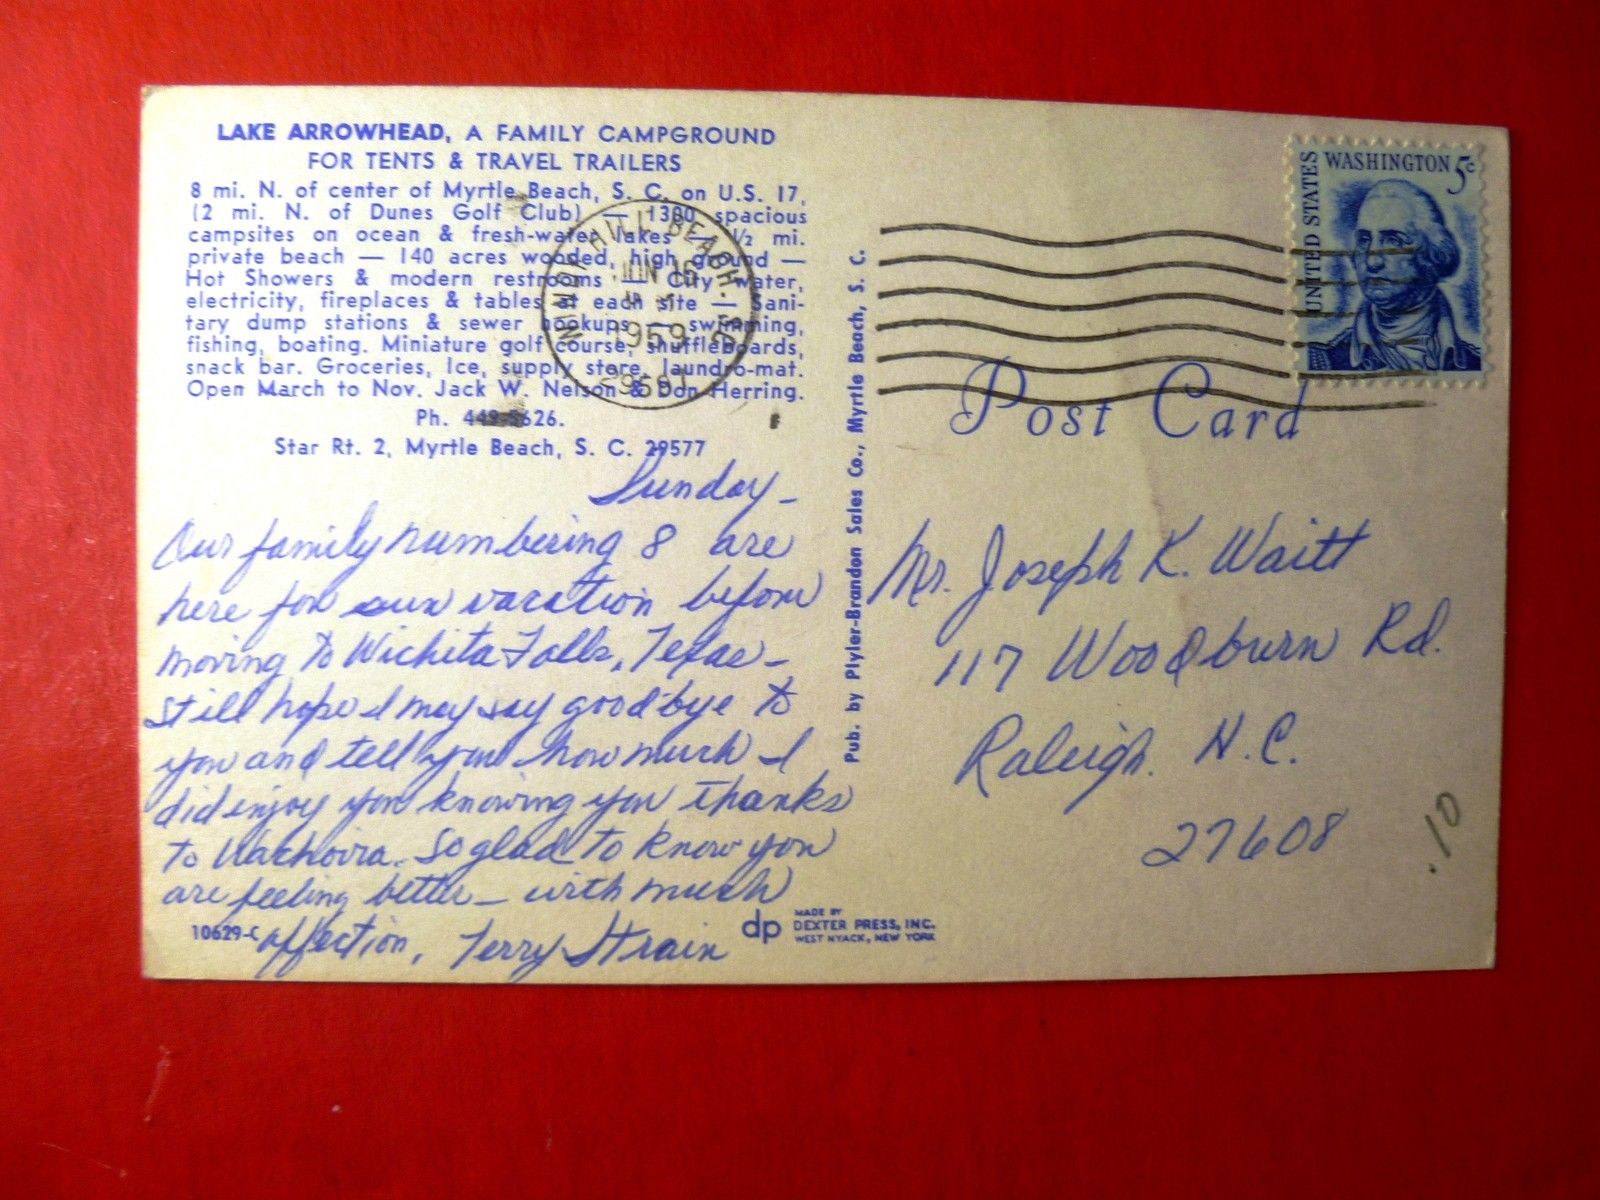 LAKE ARROWHEAD, A FAMILY CAMPGROUND
FOR TENTS & TRAVEL TRAILERS
8 mi. N. of center of Myrtle Beach, S. C. on U.S. 17,
(2 mi. N. of Dunes Golf Club) — 1300 spacious
campsites on ocean & fresh-water lakes — 1/2 mi.
private beach — 140 acres wooded, high ground —
Hot Showers & modern restrooms — City water,
electricity, fireplaces & tables at each site — Sani-
tary dump stations & sewer hookups — swimming,
fishing, boating. Miniature golf course, shuffleboards,
snack bar. Groceries, Ice, supply store, laundro-mat.
Open March to Nov. Jack W. Nelson & Don Herring.
Ph. 449-5626.
Star Rt. 2, Myrtle Beach, S. C. 29577
Sunday -
Our family numbering 8 are
here for our vacation before
moving to Wichita Falls, Texas -
still hope I may say goodbye to
you and tell you how much I
did enjoy you knowing you thanks
to Wachovia. So glad to know you
are feeling better - with much
affection, Terry Strain
10629-C
dp MADE BY
DEXTER PRESS, INC.
WEST NYACK, NEW YORK
Pub. by Plyler-Brandon Sales Co., Myrtle Beach, S. C.
BEACH, SC
JUN 16
1959
29582
UNITED STATES
WASHINGTON 5c
Post Card
Mr. Joseph K. Waitt
117 Woodburn Rd.
Raleigh. N.C.
27608
.10